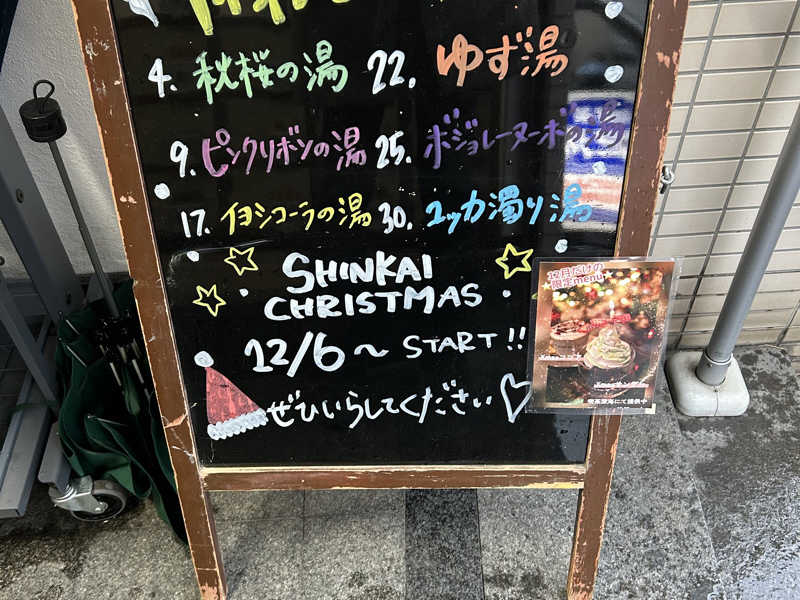 4. 秋桜の湯
22. ゆず湯
9. ピンクリボンの湯
25. ボジョレーヌーボの湯
17. イヨシコーラの湯
30. ユッカ濁り湯
SHINKAI
CHRISTMAS
12/6~ START!!
ぜひいらしてください♡
12月だけの
限定menu